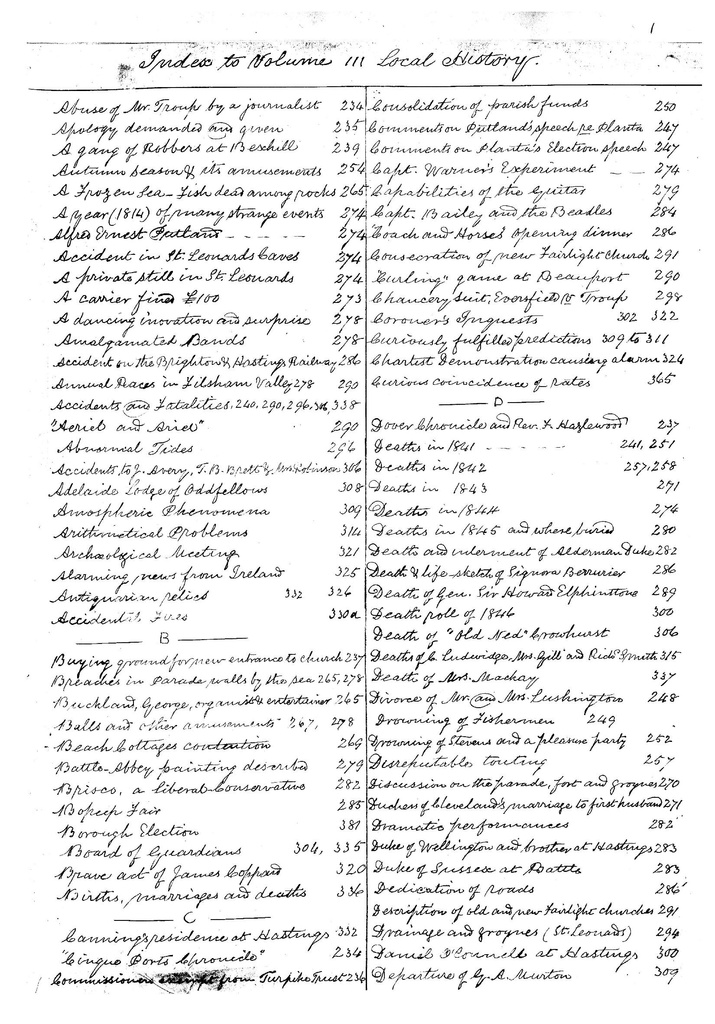 1
Index to Volume III Local History.
Abuse of Mr. Troup by a journalist 234
Apology demanded and given 235
A gang of Robbers at Bexhill 239
Autumn season & its amusements 254
A Frozen Sea - Fish dead among rocks 265
A year (1814) of many strange events 274
Alfred Ernest Putland 274
Accident in St. Leonards Caves 274
A private still in St. Leonards 274
A carrier fined £100 273
A dancing inovation and surprise 278
Amalgamated Bands 278
Accident on the Brighton & Hastings Railway 286
Annual Races in Filsham Valley 278 290
Accidents and Fatalities, 240, 290, 296, 338
"Aeriel and Ariel" 290
Abnormal Tides 296
Accidents to J. Avery, T. B. Brett & Mrs. Robinson 306
Adelaide Lodge of Oddfellows 308
Amospheric Phenomena 309
Arithmetical Problems 314
Archæological Meeting 321
Alarming news from Ireland 325
Antiquarian relics 332 326
Accident'l Fires 330a
B
Buying ground for new entrance to church 237
Breaches in Parade walls by the sea 265, 278
Buckland, George, organist & entertainer 265
Balls and other amusements 267, 278
Beach Cottages contention 269
Battle-Abbey painting described 279
Brisco, a liberal-Conservative 282
Bopeep Fair 285
Borough Election 381
Board of Guardians 304, 335
Brave act of James Coppard 320
Births, marriages and deaths 336
C
Canning's residence at Hastings 332
"Cinque Ports Chronicle" 234
Commissioners exempt from Turpike Trust 236
Consolidation of parish funds 250
Comments on Putland's speech re Planta 247
Comments on Planta's Election speech 247
Capt. Warner's Experiment 274
Capabilities of the Guitar 279
Capt. Bailey and the Beadles 284
"Coach and Horses" opening dinner 286
Consecration of new Fairlight Church 291
"Curling" game at Beauport 290
Chancery Suit, Eversfield v Troup 298
Coroner's Inquests 302 322
Curiously fulfilled predictions 309 to 311
Chartest Demonstration causing alarm 324
Curious coincidence of rates 365
D
Dover Chronicle and Rev. F. Hazlewood 237
Deaths in 1841 241, 251
Deaths in 1842 257, 258
Deaths in 1843 271
Deaths in 1844 274
Deaths in 1845 and where buried 280
Deaths and interment of Alderman Duke 282
Death & life-sketch of Signora Berrurier 286
Death of Gen. Sir Howard Elphinstone 289
Death roll of 1846 300
Death of "Old Ned" Crowhurst 306
Deaths of C. Ludwidge, Mrs. Gill and Richd Smith 315
Death of Mrs. Mackay 337
Divorce of Mr. and Mrs. Lushington 248
Drowning of Fishermen 249
Drowning of Stevens and a pleasure party 252
Disreputable touting 257
Discussion on the parade, fort and groynes 270
Duchess of Cleveland's marriage to first husband 271
Dramatic performances 282
Duke of Wellington and brother at Hastings 283
Duke of Sussex at Battle 283
Dedication of roads 286
Description of old and new Fairlight churches 291
Drainage and groynes (St. Leonards) 294
Daniel O'Connell at Hastings 300
Departure of G. A. Murton 309